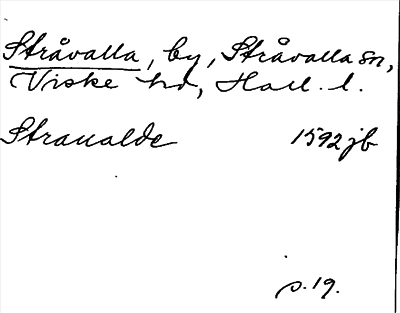 Stråvalla, by, Stråvalla sn,
Viske hd, Hall. l.
Straualde 1592 jb
s. 19.